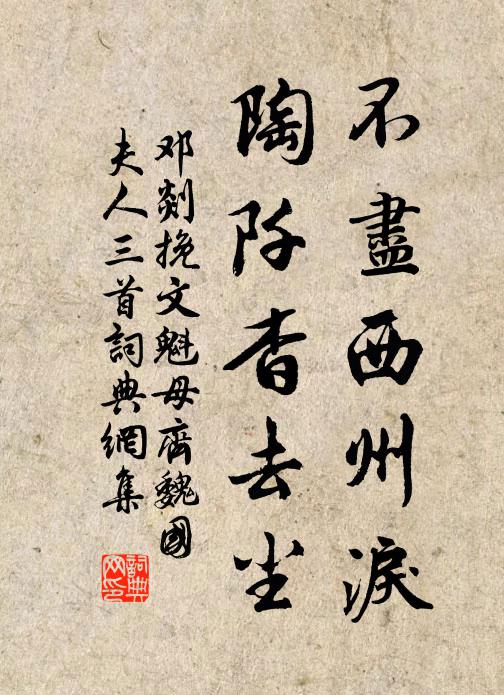 不盡西州淚
陶阡杳去尘
邓剡挽文魁母齊魏國
夫人三首詞典網集
詞典
网印